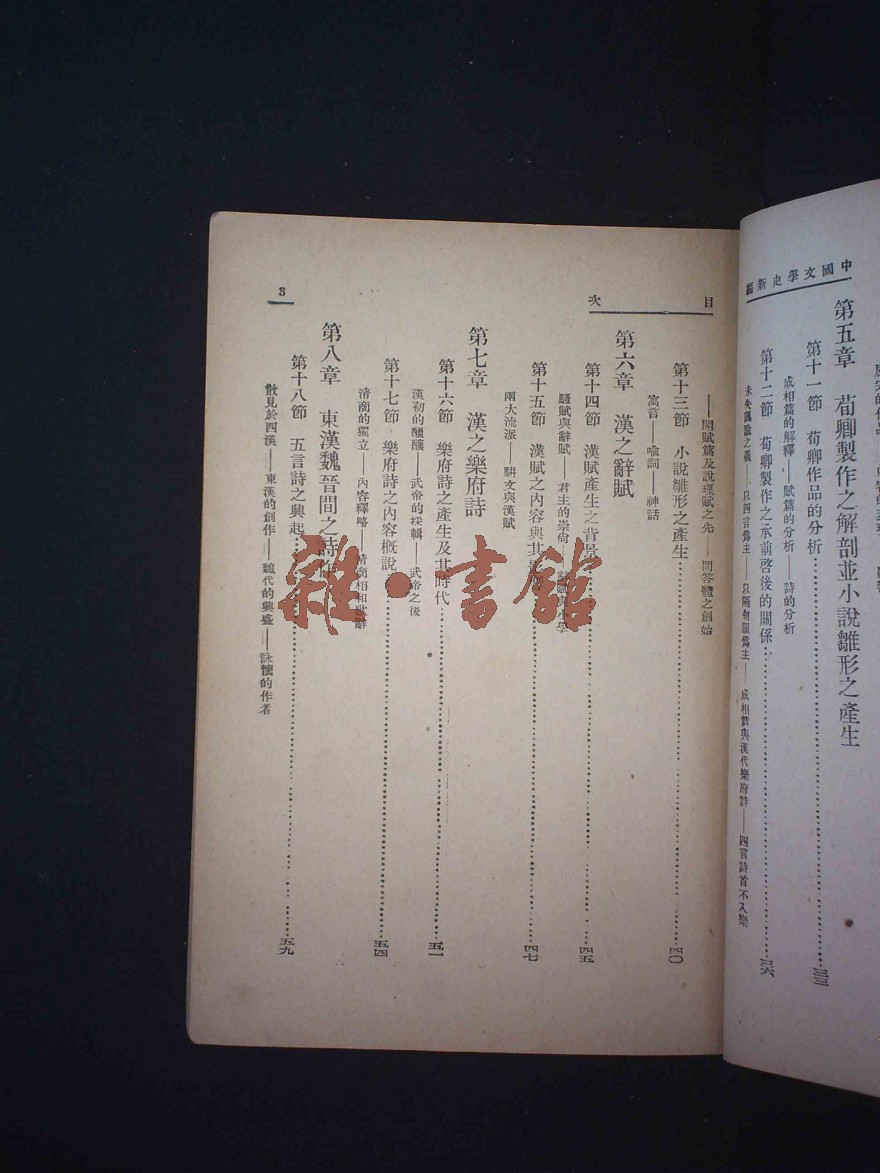 中國文學史新編
第五章 荀卿製作之解剖並小說雛形之產生
第十一節 荀卿作品的分析 三三
成相篇的解釋——賦篇的分析——詩的分析
第十二節 荀卿製作之承前啓後的關係 三六
未失諷諭之義——以四言爲主——以隔句韻爲主——成相篇與漢代樂府詩——四言詩首不入樂
目次
——開賦篇及說理賦之先——問答體之創始
第十三節 小說雛形之產生 四〇
寓言——喩詞——神話
第六章 漢之辭賦
第十四節 漢賦產生之背景 四五
騷賦與辭賦——君主的崇尙——辭賦與小學
第十五節 漢賦之內容與其 四七
兩大流派——駢文與漢賦
第七章 漢之樂府詩
第十六節 樂府詩之產生及其時代 五一
漢初的醞釀——武帝的採輯——武帝之後
第十七節 樂府詩之內容槪說 五四
淸商的獨立——內容釋略——淸商相和歌辭
第八章 東漢魏晉間之詩
第十八節 五言詩之興起 五九
散見於西漢——東漢的創作——魏代的興盛——詠懷的作者
3
雜·書館